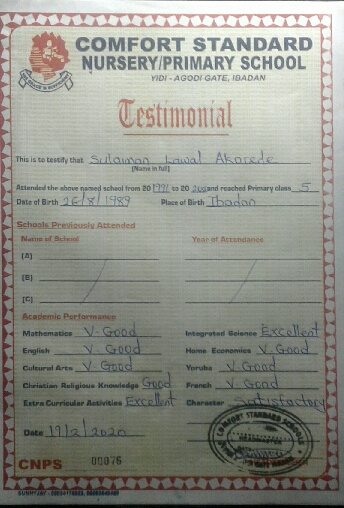 COMFORT STANDARD
NURSERY/PRIMARY SCHOOL
YIDI - AGODI GATE, IBADAN
Testimonial
This is to testify that Sulaimon Lawal Akorede
(Name in full)
Attended the above named school from 20 1991 to 20 2000 and reached Primary class 5
Date of Birth 26/8/1989 Place of Birth Ibadan
Schools Previously Attended
Name of School Year of Attendance
(A)
(B)
(C)
Academic Performance
Mathematics V. Good Integrated Science Excellent
English V. Good Home Economics V. Good
Cultural Arts V. Good Yoruba V. Good
Christian Religious Knowledge Good French V. Good
Extra Curricular Activities Excellent Character Satisfactory
Date 19/2/2020
COMFORT STANDARD SCHOOLS
CNPS 00076